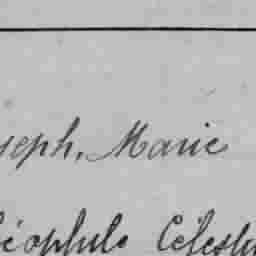 seph, Marie
éophile Célest